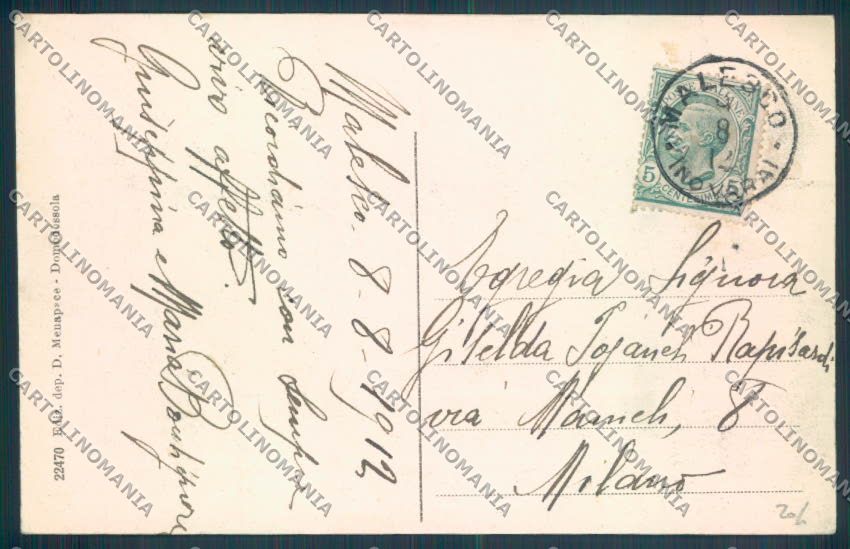 Malesco. 8-8-1912
Ricordiamo con sempre
vivo affetto.
Giuseppina e Maria
22470 Ediz. dep. D. Menapace - Domodossola
MALESCO
8
(NOVARA)
POSTE ITALIANE
5 CENTESIMI 5
Egregia Signora
Gitelda Rapisardi
via Manneli, 8
Milano
CARTOLINOMANIA